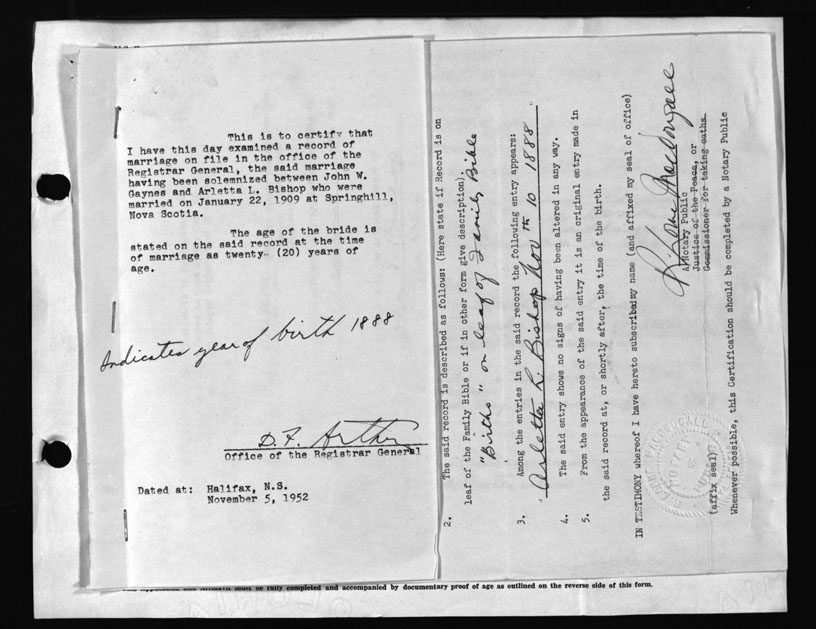 This is to certify that
I have this day examined a record of
marriage on file in the office of the
Registrar General, the said marriage
having been solemnized between John W.
Gaynes and Arletta L. Bishop who were
married on January 22, 1909 at Springhill,
Nova Scotia.
The age of the bride is
stated on the said record at the time
of marriage as twenty- (20) years of
age.
Indicates year of birth 1888
D. F. Arthur
Office of the Registrar General
Dated at: Halifax, N.S.
November 5, 1952
2. The said record is described as follows: (Here state if Record is on
leaf of the Family Bible or if in other form give description).
"Births" on leaf of Family Bible
3. Among the entries in the said record the following entry appears:
Arletta L. Bishop Nov 10th 1888
4. The said entry shows no signs of having been altered in any way.
5. From the appearance of the said entry it is an original entry made in
the said record at, or shortly after, the time of the birth.
IN TESTIMONY whereof I have hereto subscribed my name (and affixed my seal of office)
A Notary Public
Justice of the Peace, or
Commissioner for taking oaths.
(affix seal)
Whenever possible, this Certification should be completed by a Notary Public
must be fully completed and accompanied by documentary proof of age as outlined on the reverse side of this form.